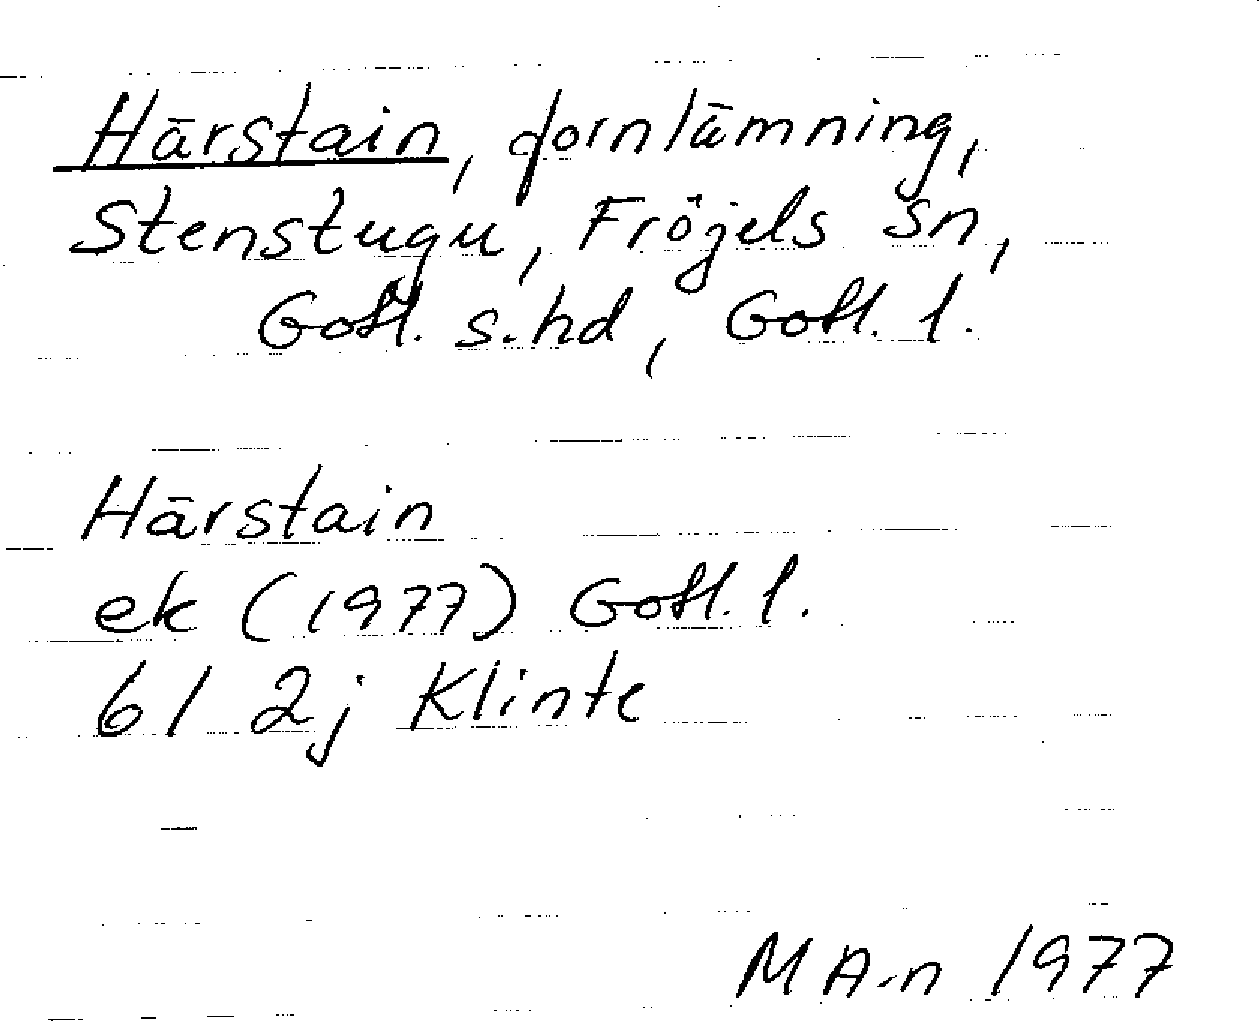 Härstain, fornlämning,
Stenstugu, Fröjels sn,
Gotl. s. hd, Gotl. l.
Härstain
ek (1977) Gotl. l.
6I 2j Klinte
M A-n 1977